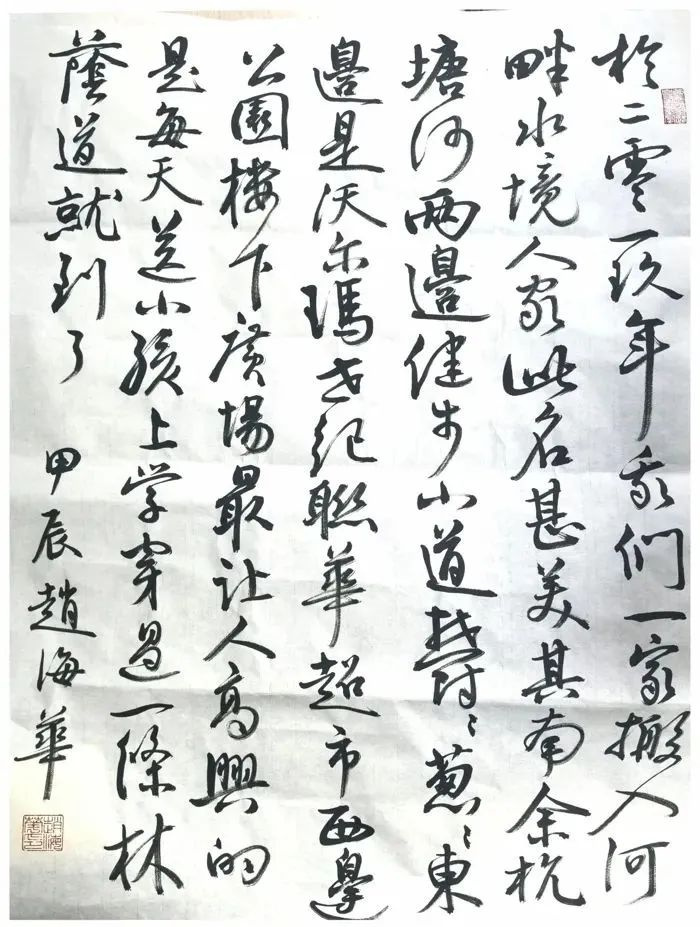 於二零一玖年我们一家搬入河
畔水境人家此名甚美其南余杭
塘河两邊健步小道鬱〻蔥〻東
邊是沃尔瑪世紀聯華超市西邊
公園楼下廣場最让人高興的
是每天送小孩上学穿過一條林
蔭道就到了
甲辰趙海華